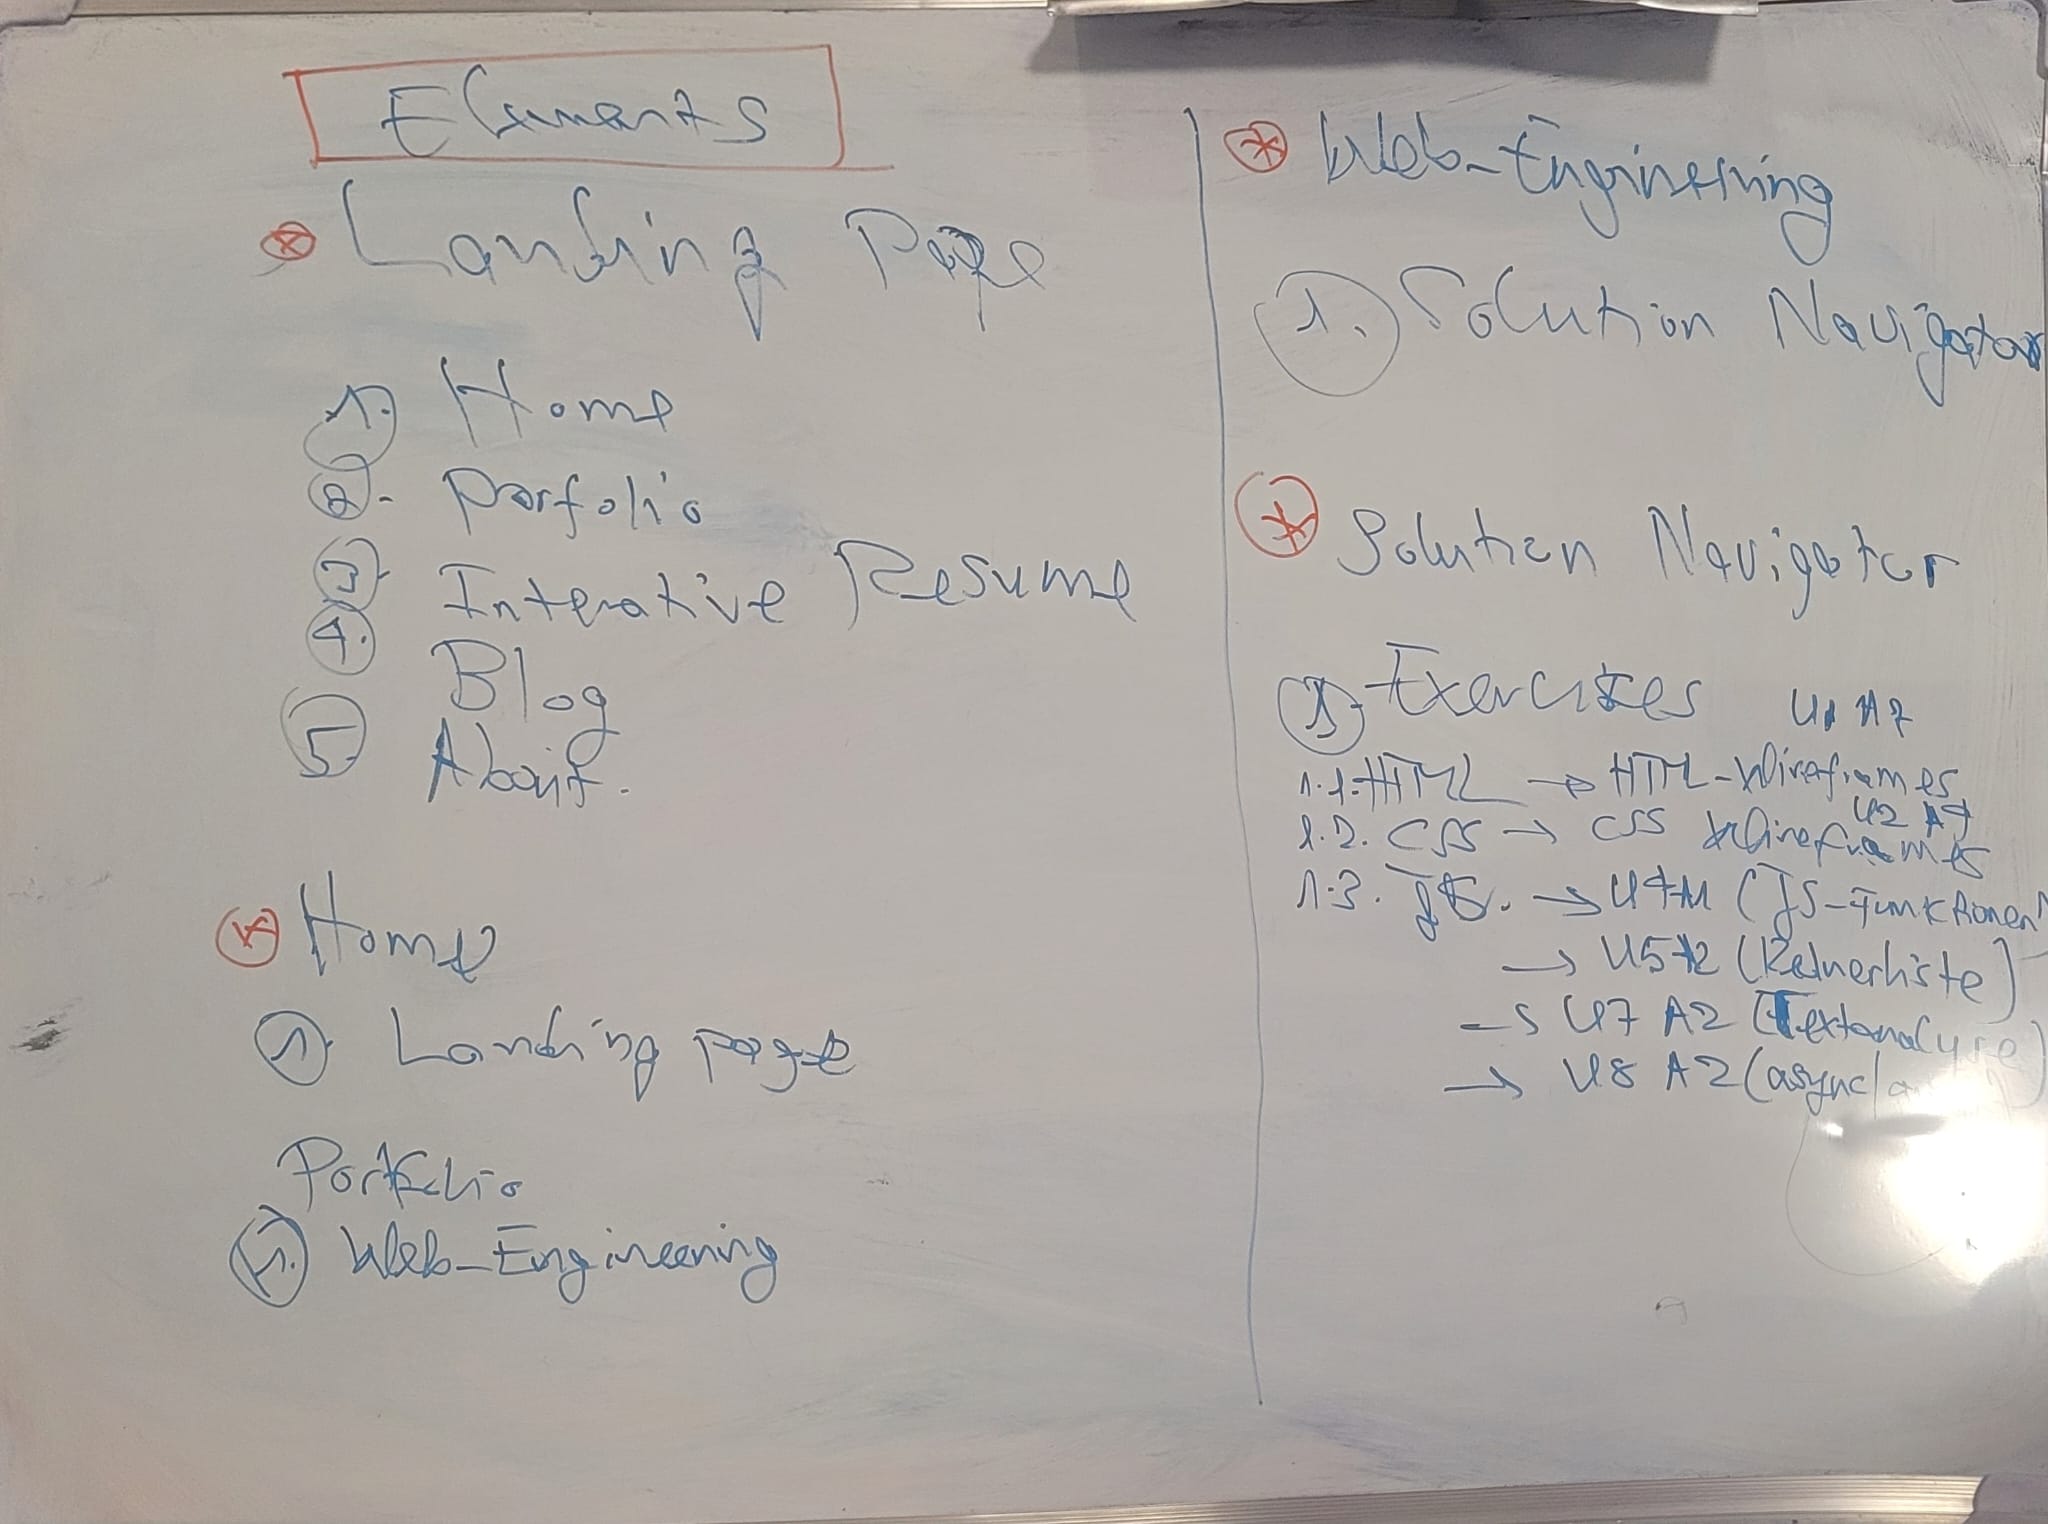 Elements
Landing Page
1. Home
2. Porfolio
3. Interative Resume
4. Blog
5. About.
Home
1. Landing page
Portfolio
1. Web-Engineering
Web-Engineering
1. Solution Navigator
Solution Navigator
1. Exercises
1.1. HTML → HTML-Wireframes
1.2. CSS → CSS Wireframes
U2
1.3. JS. → (JS-Funktionen
→ (Rednerliste)
→ U7 A2 (Textanalyse)
→ U8 A2 (async/